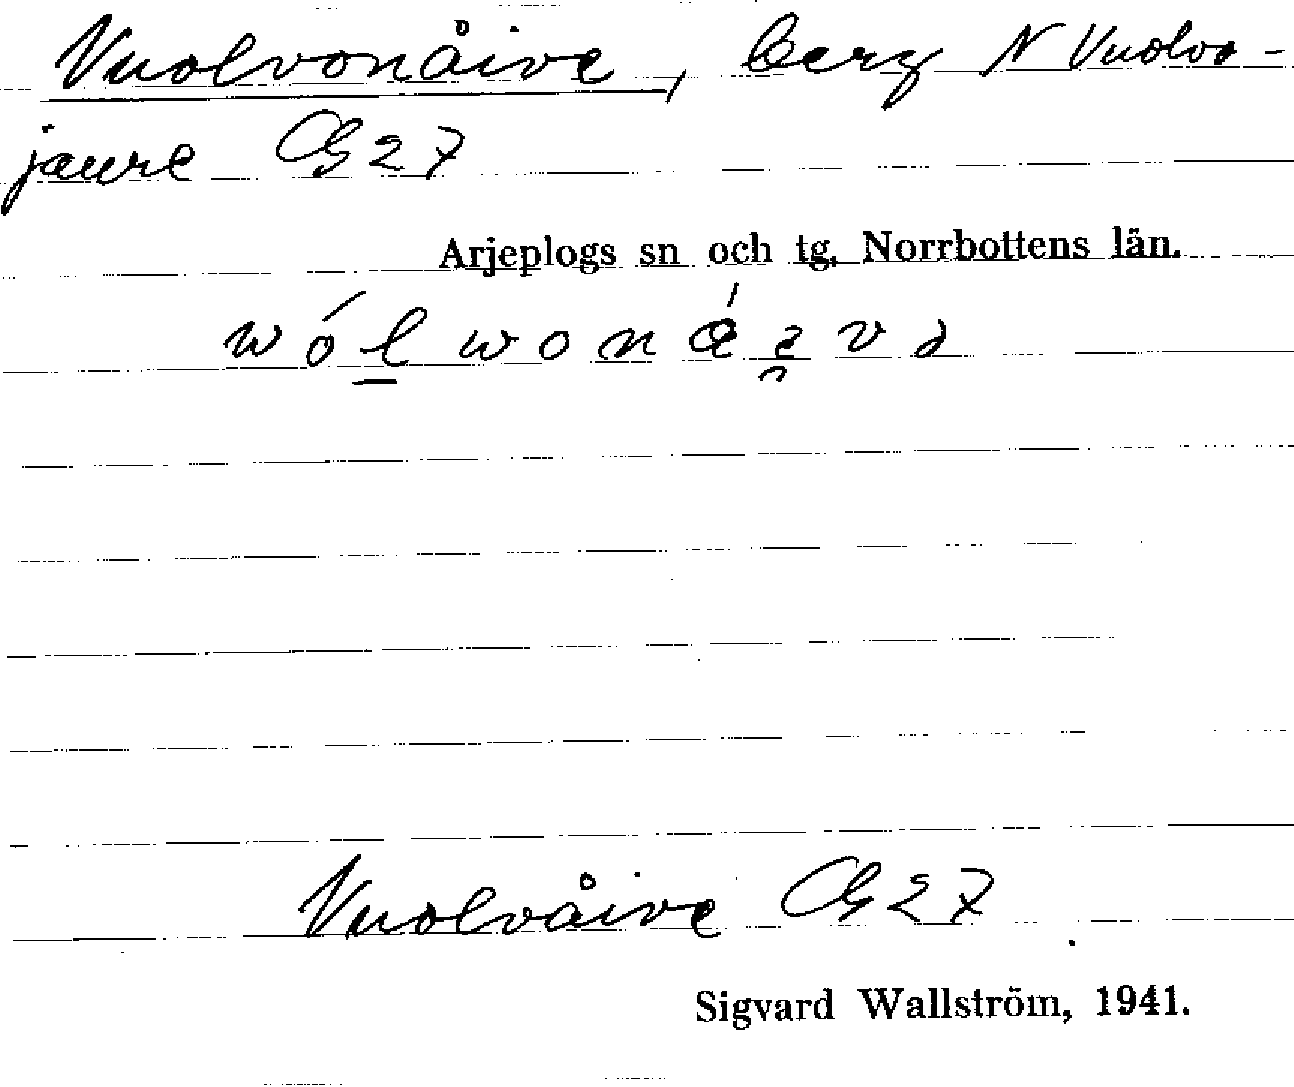 Vuolvonåive, berg N Vuolvo-
jaure G 27
Arjeplogs sn och tg. Norrbottens län.
Vuolvåive G 27
Sigvard Wallström, 1941.